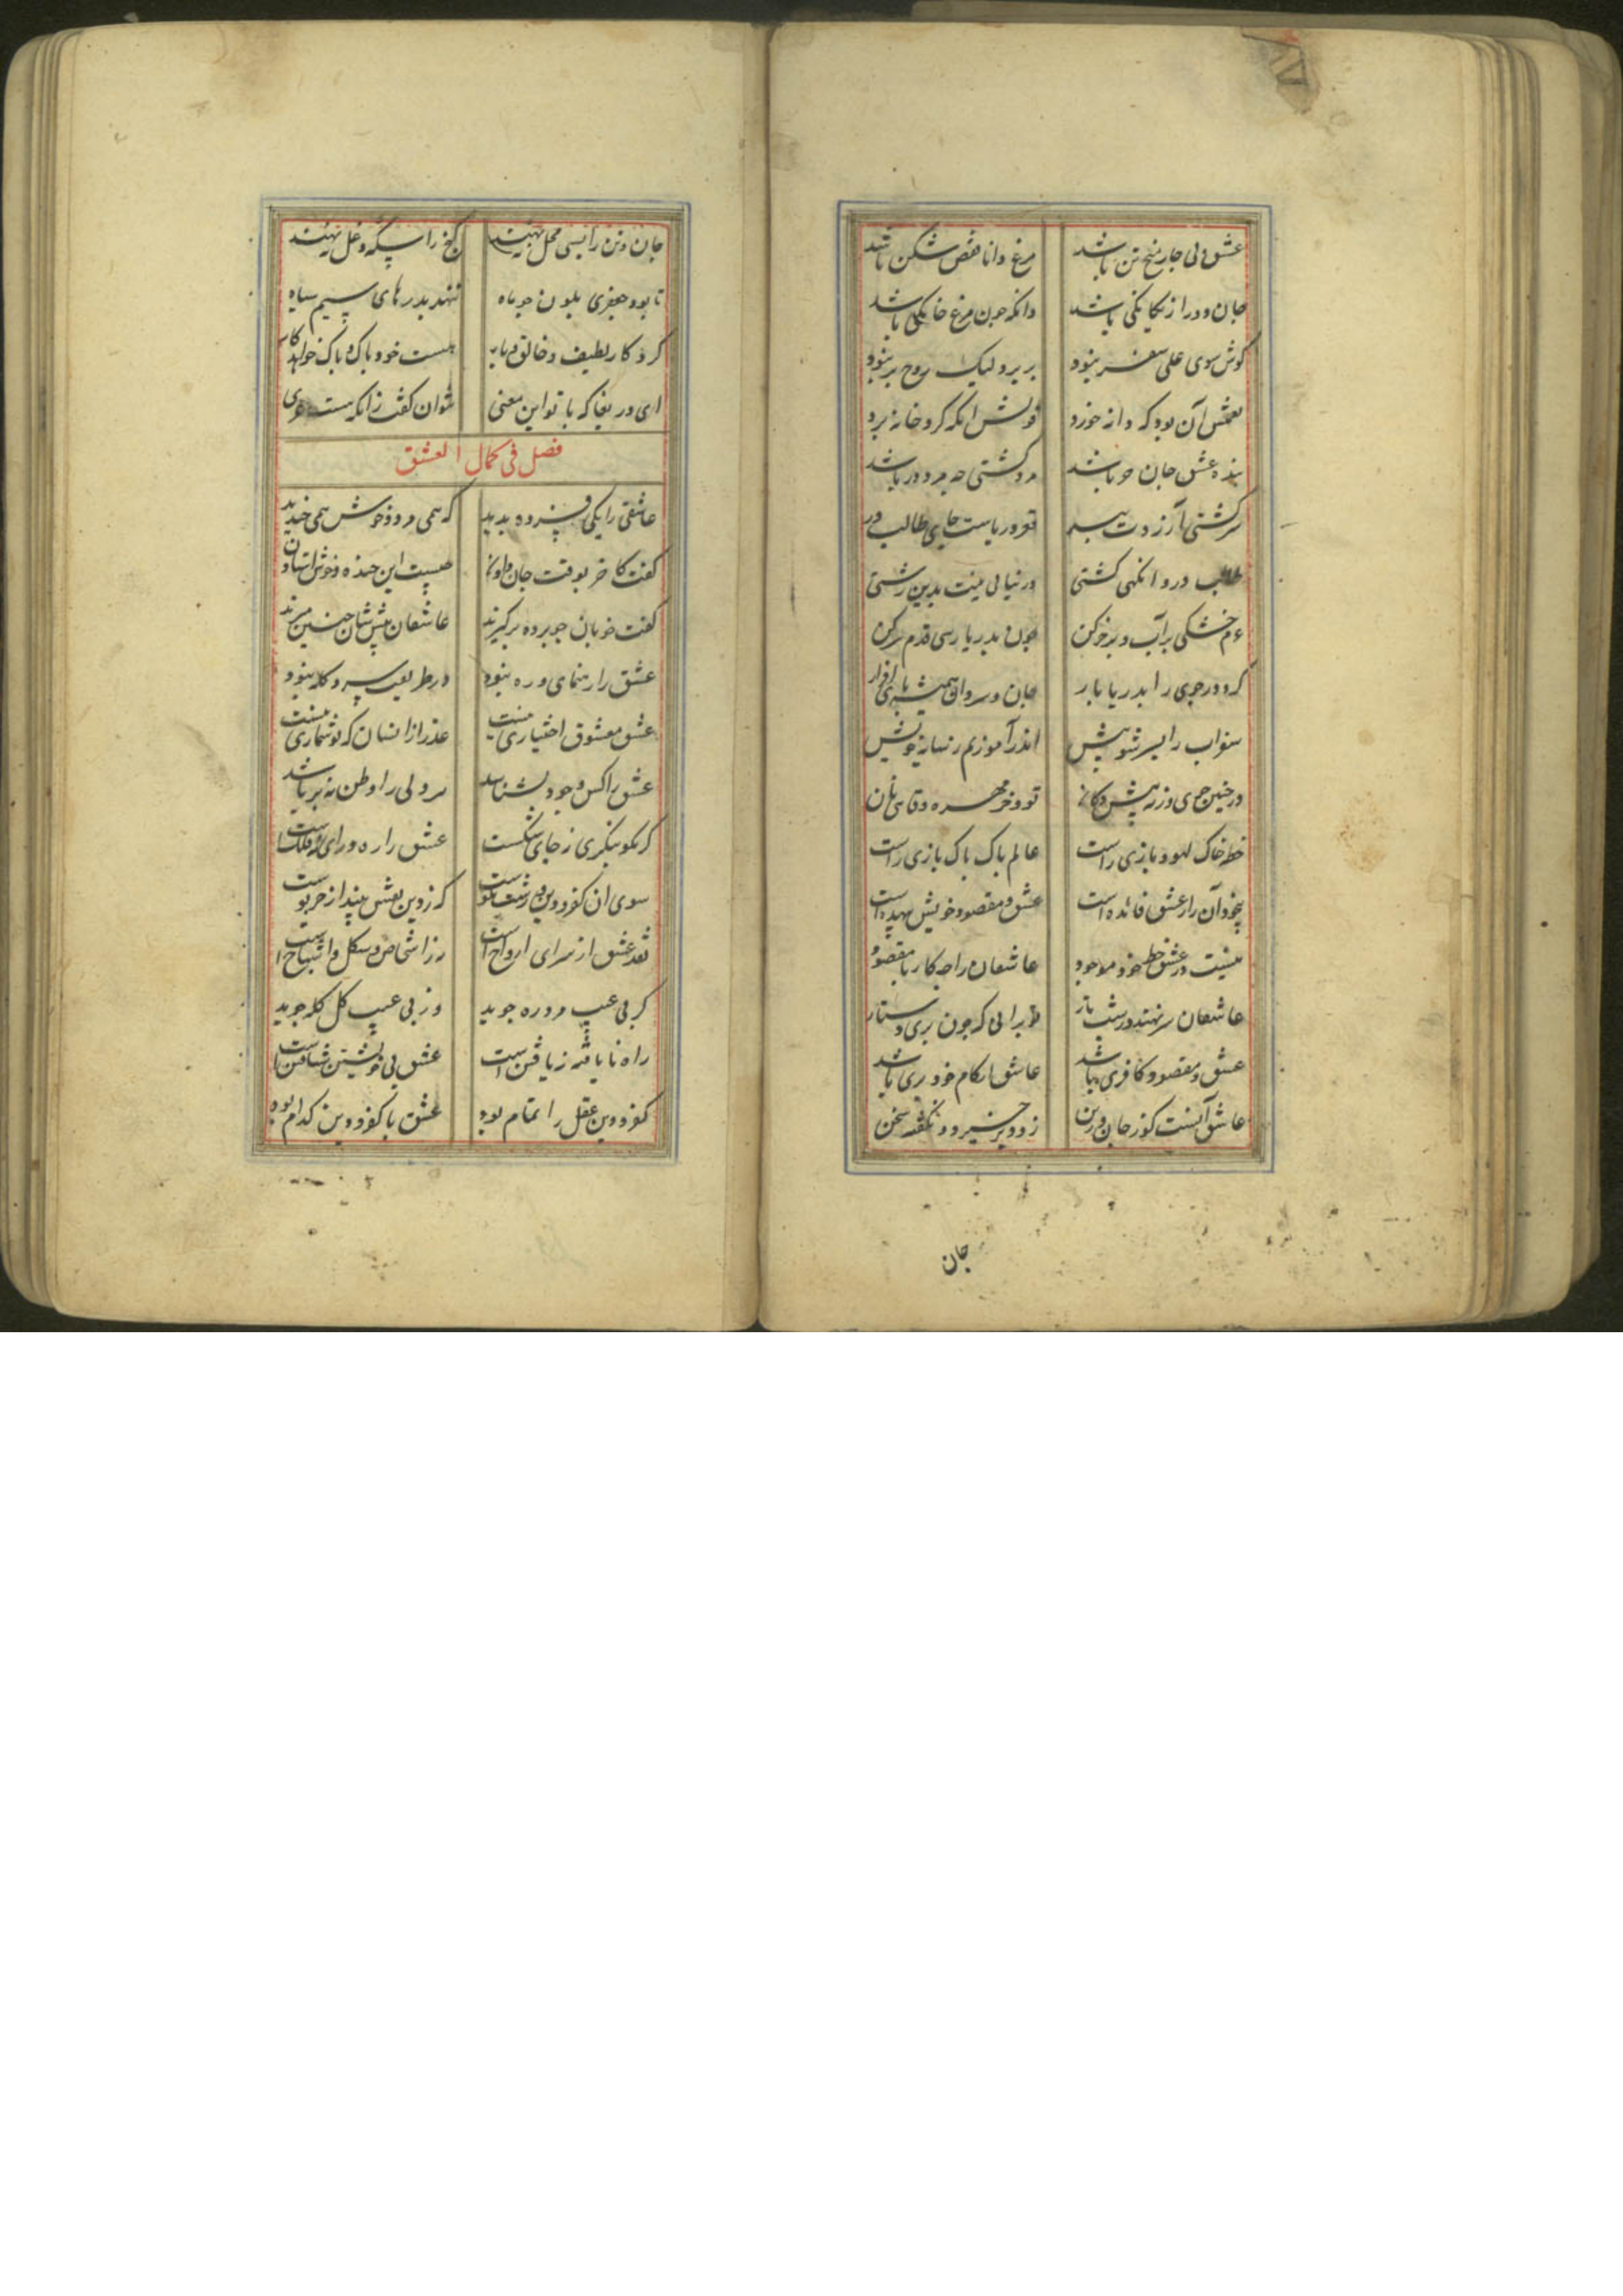 عشق و بی چار میخ تن باشد مرغ دانا قفص شکن باشد
جان ودر از یکایکی باشد دانکه جون مرغ خانکی باشد
کوش سوی علی سفر نبود بر برد لیک روح بر نبود
همتش آن بود که دانه خورد قوتش انکه کرد خانه برد
بنده عشق جان حر باشد مرد کشتی چه مرد در باشد
سر کشتی ز آرزو دت پر قعر دریاست جای طالب در
طالب در و انکهی کشتی در نیابی نیت بدین زشتی
عزم خشکی بر آب و بر خر کن چون بدریا رسی قدم سر کن
کرد در جوی را بدریا بار جان و سر دان همیشه پای افزار
سواب را بسر شو پیش اندر آموز هم ز سایه خویش
در چنین جوی ورنه پیش دکان تو وخر مهره وقاسی نان
خطه خاک لهو و بازی راست عالم پاک پاک بازی راست
بیخودان را ز عشق فائده است عشق و مقصود خویش بیهده است
نیست در عشق خط خود موجود عاشقان را چه کار با مقصود
عاشقان سر نهند در شب تار تو برانی که جون بری دستار
عشق و مقصود کافری باشد عاشق از کام خود بری باشد
عاشق آنست کوز جان وز تن زود بر خیزد و نکفته سخن
جان
جان وتن را بسی محل ننهند کخ را سکه و غل ننهند
تا بود جعفری بلون جو ماه ننهد بدرهای سیم سیاه
کردکار لطیف و خالق بار هست خود پاک و پاک خواهد کار
ای دریغا که با تو این معنی نتوان کفت زانکه هست
فصل فی کمال العشق
عاشقی را یکی فسرده بدید که همی مرد و خوش همی خندید
کفت کاخر بوقت جان دادن چیست این خنده و خوش استادن
کفت خوبان جو پرده بر کیرند عاشقان پیش شان چنین میرند
عشق را رهنمای و ره نبود در طریقت سر و کله نبود
عشق معشوق اختیاری نیست عذر از انسان که تو شماری نیست
عشق را کس وجود نشناسد هر دلی را وطن نه بر باشد
کر نکو بنکری ز جای نشکست عشق را ره ورای نه فلکست
سوی ان کفر و دین زشت نکوست که ز دین نقش بیند از خر پوست
نقد عشق از سرای ارواح است نز اشخاص و شکل و اشباح است
کر بی عیب مرد ره جوید ور بی عیب کل کله جوید
راه نا یافته ز یافتن است عشق بی خویشتن شتافتن است
کفر و دین عقل را تمام بود عشق با کفر و دین کدام بود